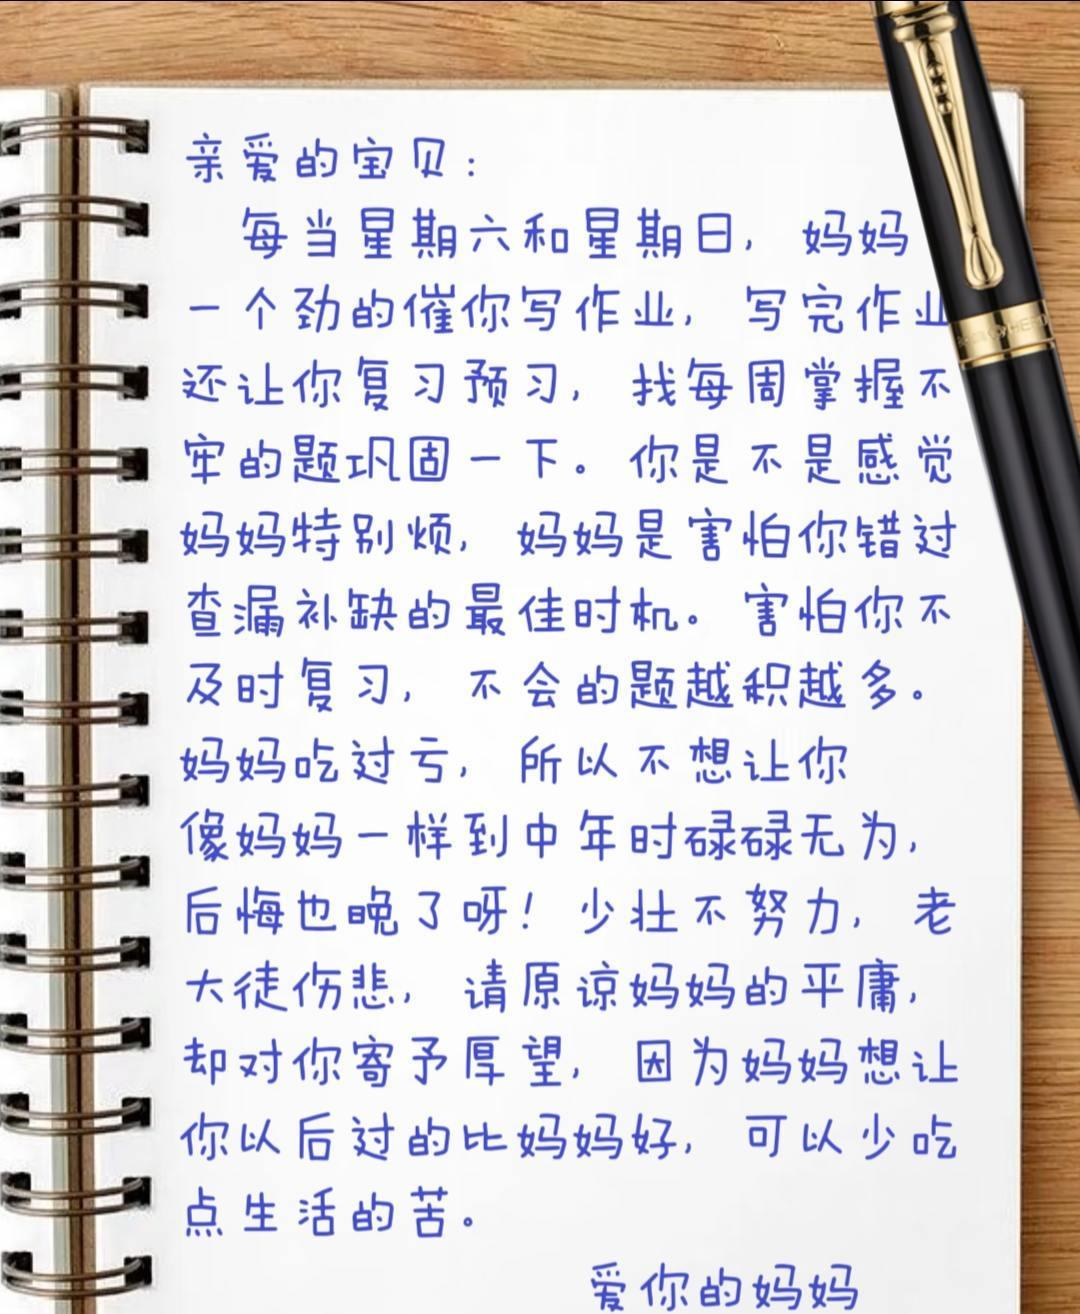 亲爱的宝贝：
每当星期六和星期日，妈妈
一个劲的催你写作业，写完作业
还让你复习预习，找每周掌握不
牢的题巩固一下。你是不是感觉
妈妈特别烦，妈妈是害怕你错过
查漏补缺的最佳时机。害怕你不
及时复习，不会的题越积越多。
妈妈吃过亏，所以不想让你
像妈妈一样到中年时碌碌无为，
后悔也晚了呀！少壮不努力，老
大徒伤悲，请原谅妈妈的平庸，
却对你寄予厚望，因为妈妈想让
你以后过的比妈妈好，可以少吃
点生活的苦。
爱你的妈妈